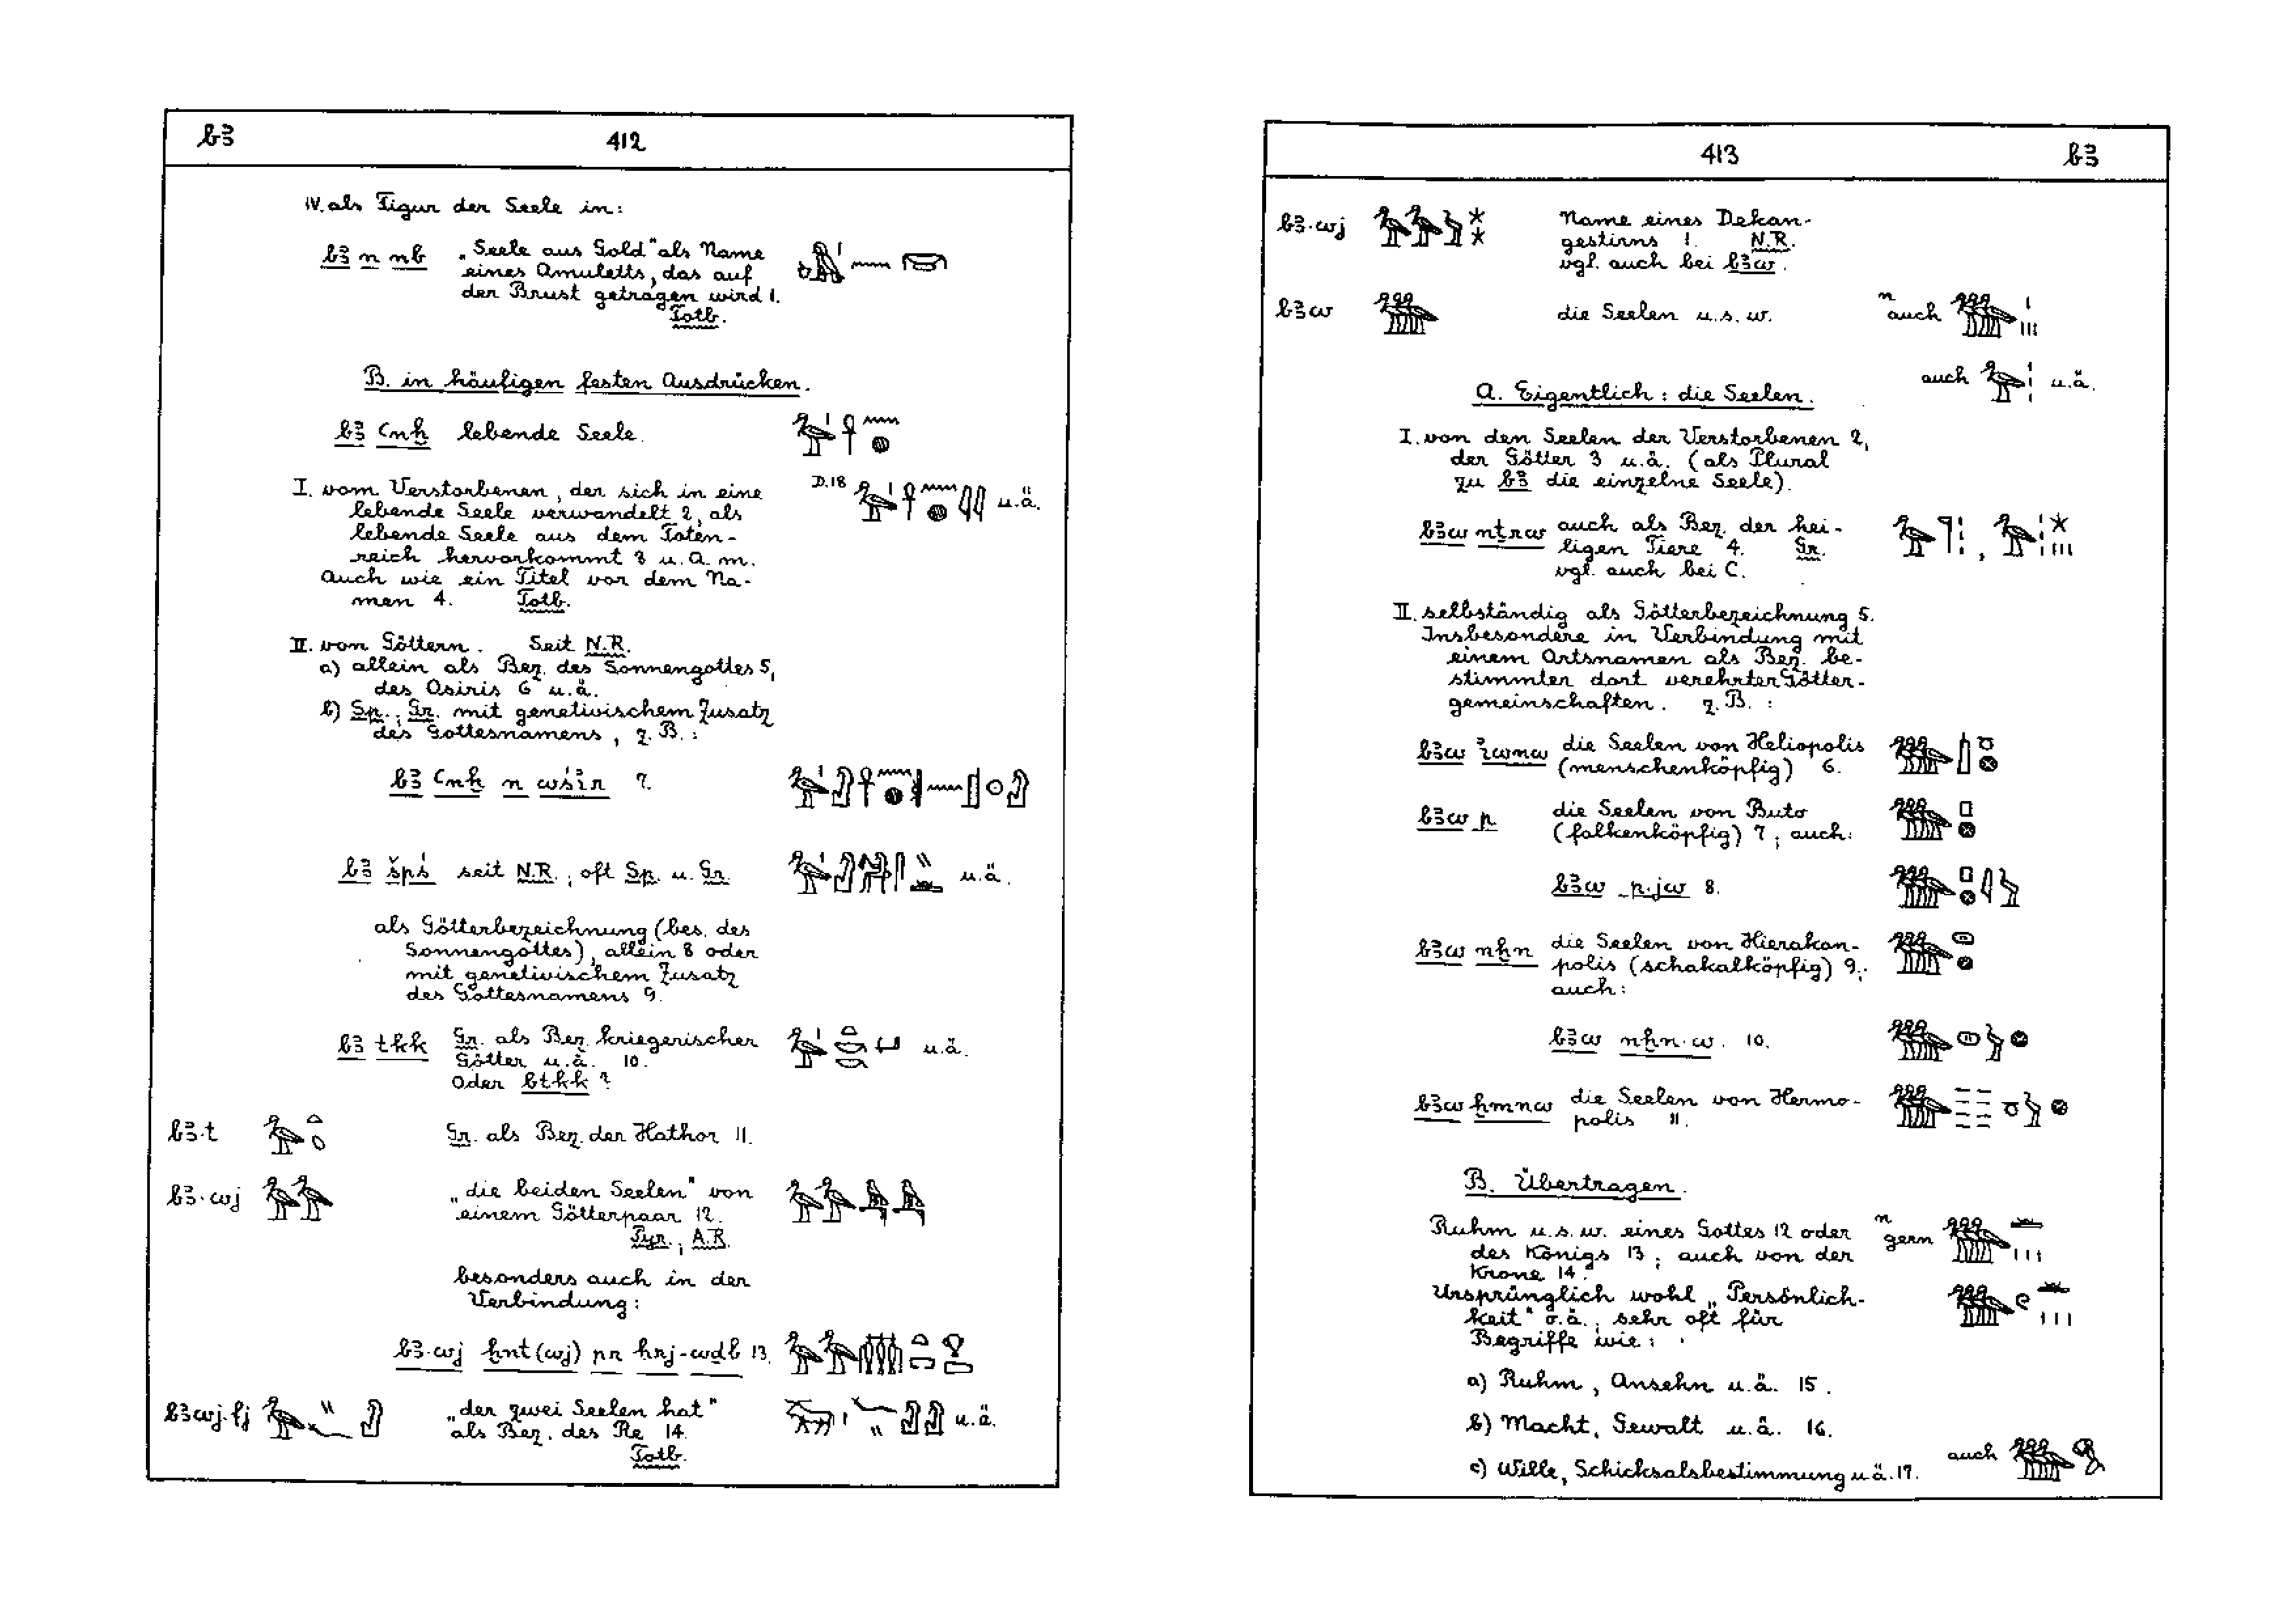 bꜣ 412
IV. als Figur der Seele in:
bꜣ n nb „Seele aus Gold" als Name
eines Amuletts, das auf
der Brust getragen wird 1.
Totb.
B. in häufigen festen Ausdrücken.
bꜣ ꜥnḫ lebende Seele.
I. vom Verstorbenen, der sich in eine
lebende Seele verwandelt 2, als
lebende Seele aus dem Toten-
reich hervorkommt 3 u. a. m.
Auch wie ein Titel vor dem Na-
men 4. Totb.
D. 18 u.ä.
II. von Göttern. Seit N.R.
a) allein als Bez. des Sonnengottes 5,
des Osiris 6 u.ä.
b) Sp., Gr. mit genetivischem Zusatz
des Gottesnamens, z.B.:
bꜣ ꜥnḫ n wśir 7.
bꜣ špś seit N.R.; oft Sp. u. Gr. u.ä.
als Götterbezeichnung (bes. des
Sonnengottes), allein 8 oder
mit genetivischem Zusatz
des Gottesnamens 9.
bꜣ tkk Gr. als Bez. kriegerischer u.ä.
Götter u.ä. 10.
Oder btkk?
bꜣ.t Gr. als Bez. der Hathor 11.
bꜣ.wj „die beiden Seelen" von
einem Götterpaar 12.
Pyr., A.R.
besonders auch in der
Verbindung:
bꜣ.wj ḫnt(wj) pr ḥrj-wḏb 13.
bꜣwj.fj „der zwei Seelen hat" u.ä.
als Bez. des Re 14.
Totb.
413 bꜣ
bꜣ.wj Name eines Dekan-
gestirns 1. N.R.
vgl. auch bei bꜣw.
bꜣw die Seelen u.s.w. n auch
auch u.ä.
A. Eigentlich: die Seelen.
I. von den Seelen der Verstorbenen 2,
der Götter 3 u.ä. (als Plural
zu bꜣ die einzelne Seele).
bꜣw nṯrw auch als Bez. der hei-
ligen Tiere 4. Gr.
vgl. auch bei C.
II. selbständig als Götterbezeichnung 5.
Insbesondere in Verbindung mit
einem Ortsnamen als Bez. be-
stimmter dort verehrter Götter-
gemeinschaften. z.B.:
bꜣw iwnw die Seelen von Heliopolis
(menschenköpfig) 6.
bꜣw p die Seelen von Buto
(falkenköpfig) 7; auch:
bꜣw p.jw 8.
bꜣw nḫn die Seelen von Hierakon-
polis (schakalköpfig) 9;
auch:
bꜣw nḫn.w. 10.
bꜣw ḫmnw die Seelen von Hermo-
polis 11.
B. Übertragen.
Ruhm u.s.w. eines Gottes 12 oder
des Königs 13; auch von der
Krone 14.
n gern
Ursprünglich wohl „Persönlich-
keit" o.ä., sehr oft für
Begriffe wie:
a) Ruhm, Ansehn u.ä. 15.
b) Macht, Gewalt u.ä. 16.
c) Wille, Schicksalsbestimmung u.ä. 17. auch